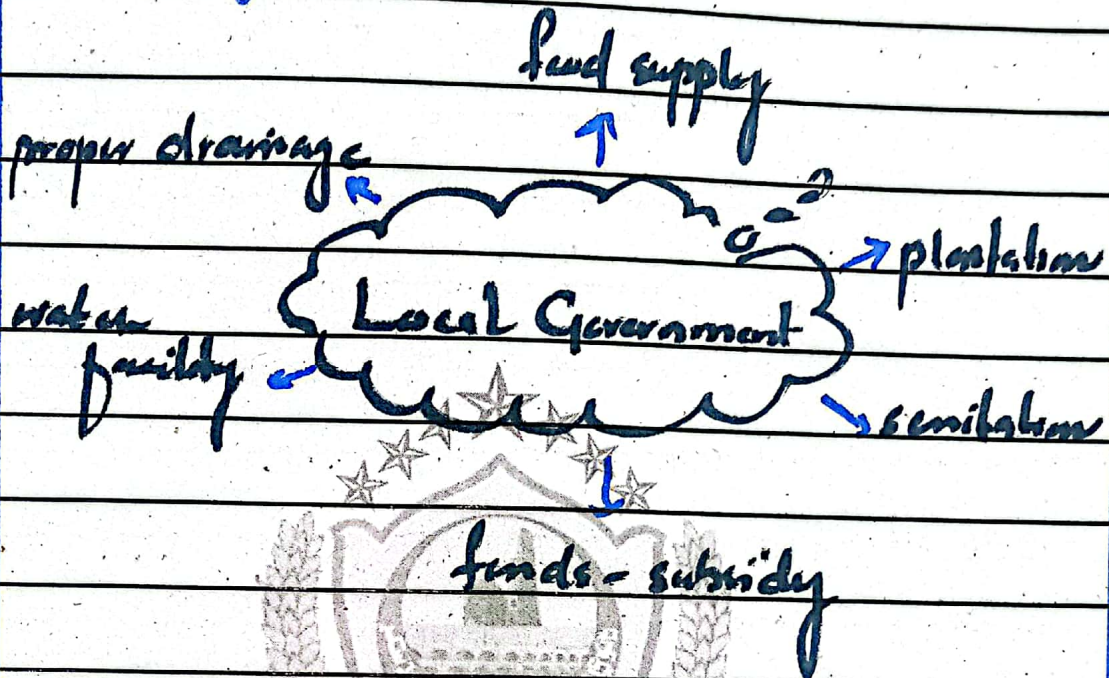 food supply
proper drainage
plantation
Local Government
water
facility
sanitation
funds - subsidy